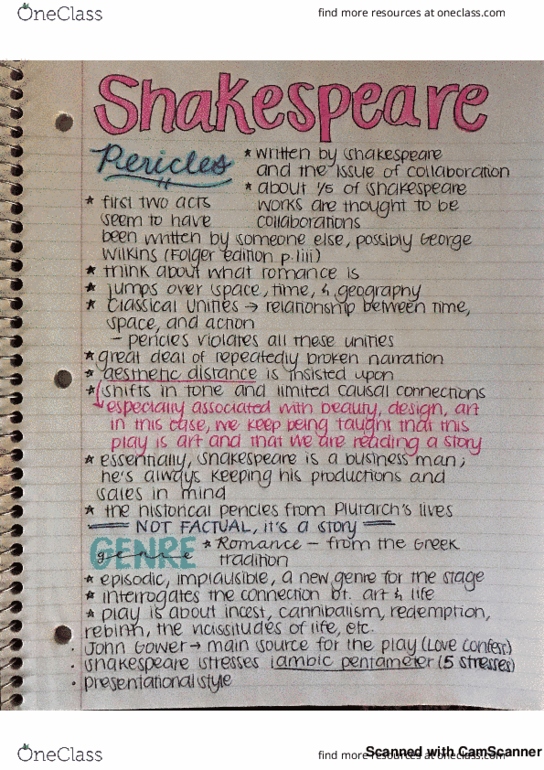 OneClass
find more resources at oneclass.com
Shakespeare
Pericles
* written by shakespeare
and the issue of collaboration
* about 1/5 of shakespeare
works are thought to be
collaborations
* first two acts
seem to have
been written by someone else, possibly George
Wilkins (Folger edition p.liii)
* think about what romance is
* jumps over space, time, & geography
* Classical Unities → relationship between time,
space, and action
- pericles violates all these unities
* great deal of repeatedly broken narration
* aesthetic distance is insisted upon
* shifts in tone and limited causal connections
especially associated with beauty, design, art
in this case, we keep being taught that this
play is art and that we are reading a story
* essentially, shakespeare is a business man;
he's always keeping his productions and
sales in mind
* the historical pericles from Plutarch's lives
NOT FACTUAL, it's a story
GENRE
genre
* Romance - from the Greek
tradition
* episodic, implausible, a new genre for the stage
* interrogates the connection bt. art & life
* play is about incest, cannibalism, redemption,
rebirth, the vicissitudes of life, etc.
· John Gower → main source for the play (Love Confess.)
· shakespeare stresses iambic pentameter (5 stresses)
· presentational style
OneClass
find more resources at oneclass.com
Scanned with CamScanner